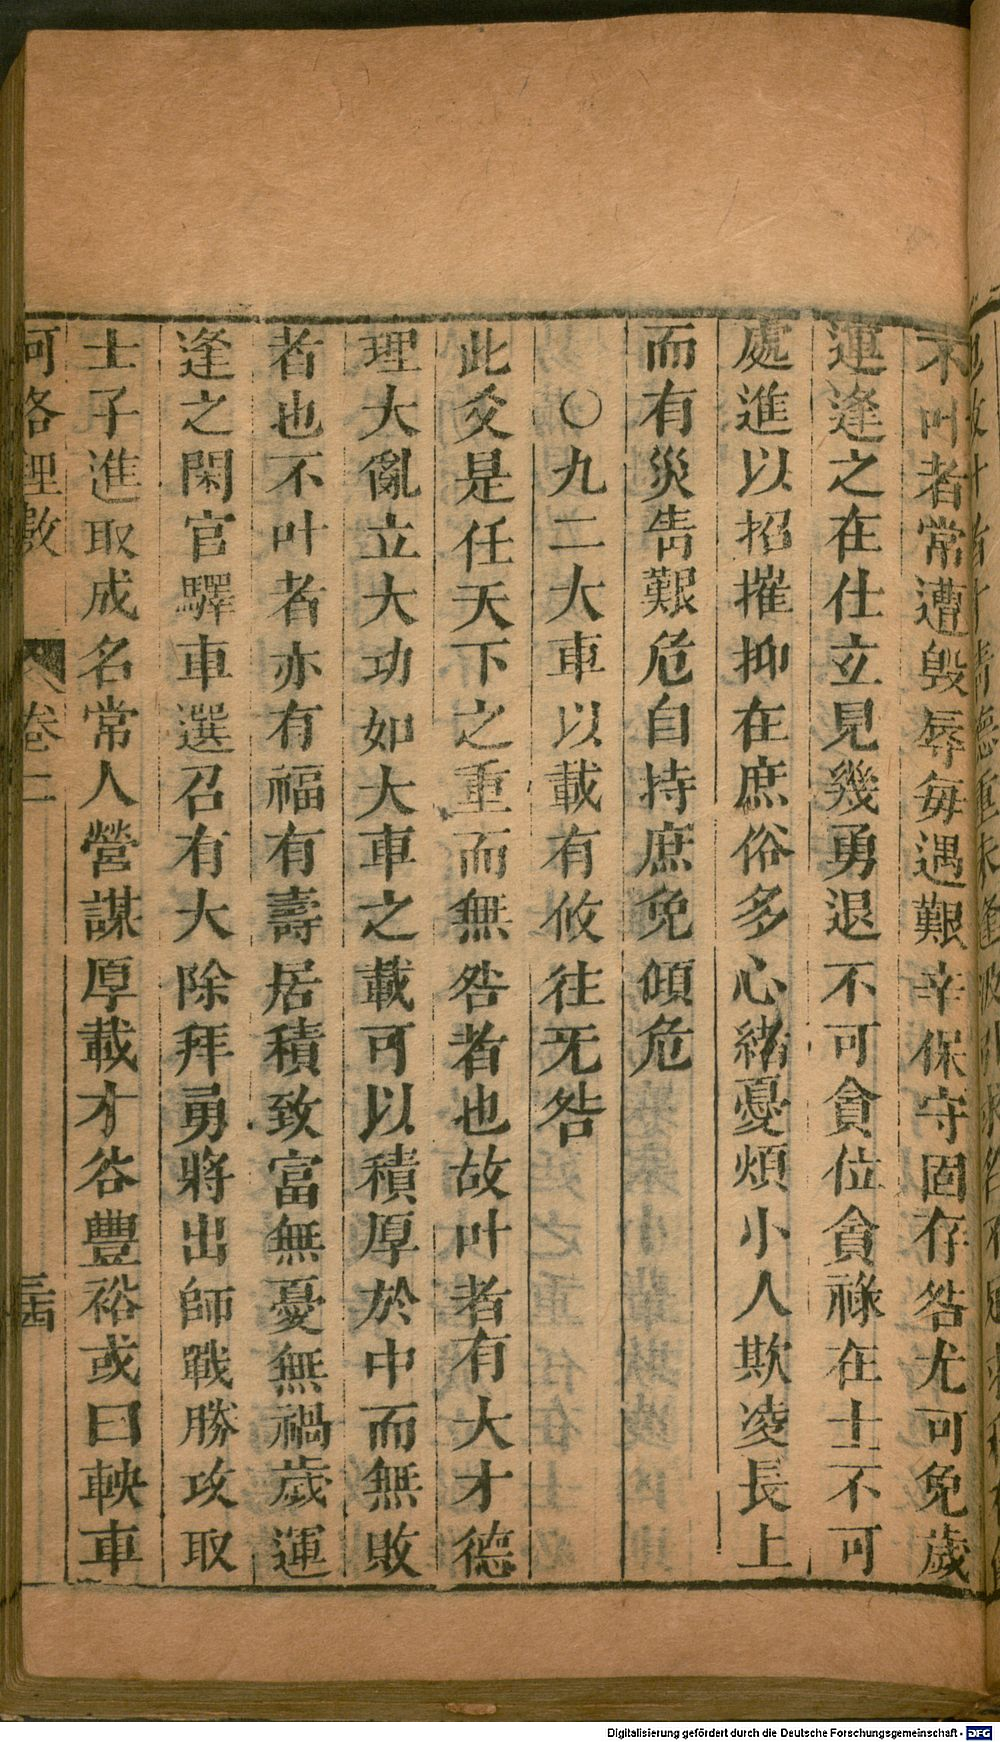 不叶者常遭毀辱每遇艱辛保守固存咎尤可免歲
運逢之在仕立見幾勇退不可貪位貪祿在士不可
處進以招摧抑在庶俗多心緒憂煩小人欺凌長上
而有災眚艱危自持庶免傾危
○九二大車以載有攸往旡咎
此爻是任天下之重而無咎者也故叶者有大才德
理大亂立大功如大車之載可以積厚於中而無敗
者也不叶者亦有福有壽居積致富無憂無禍歲運
逢之閑官驛車選召有大除拜勇將出師戰勝攻取
士子進取成名常人營謀厚載才谷豐裕或曰軮車
河洛理數 卷二 三十四
Digitalisierung gefördert durch die Deutsche Forschungsgemeinschaft - DFG